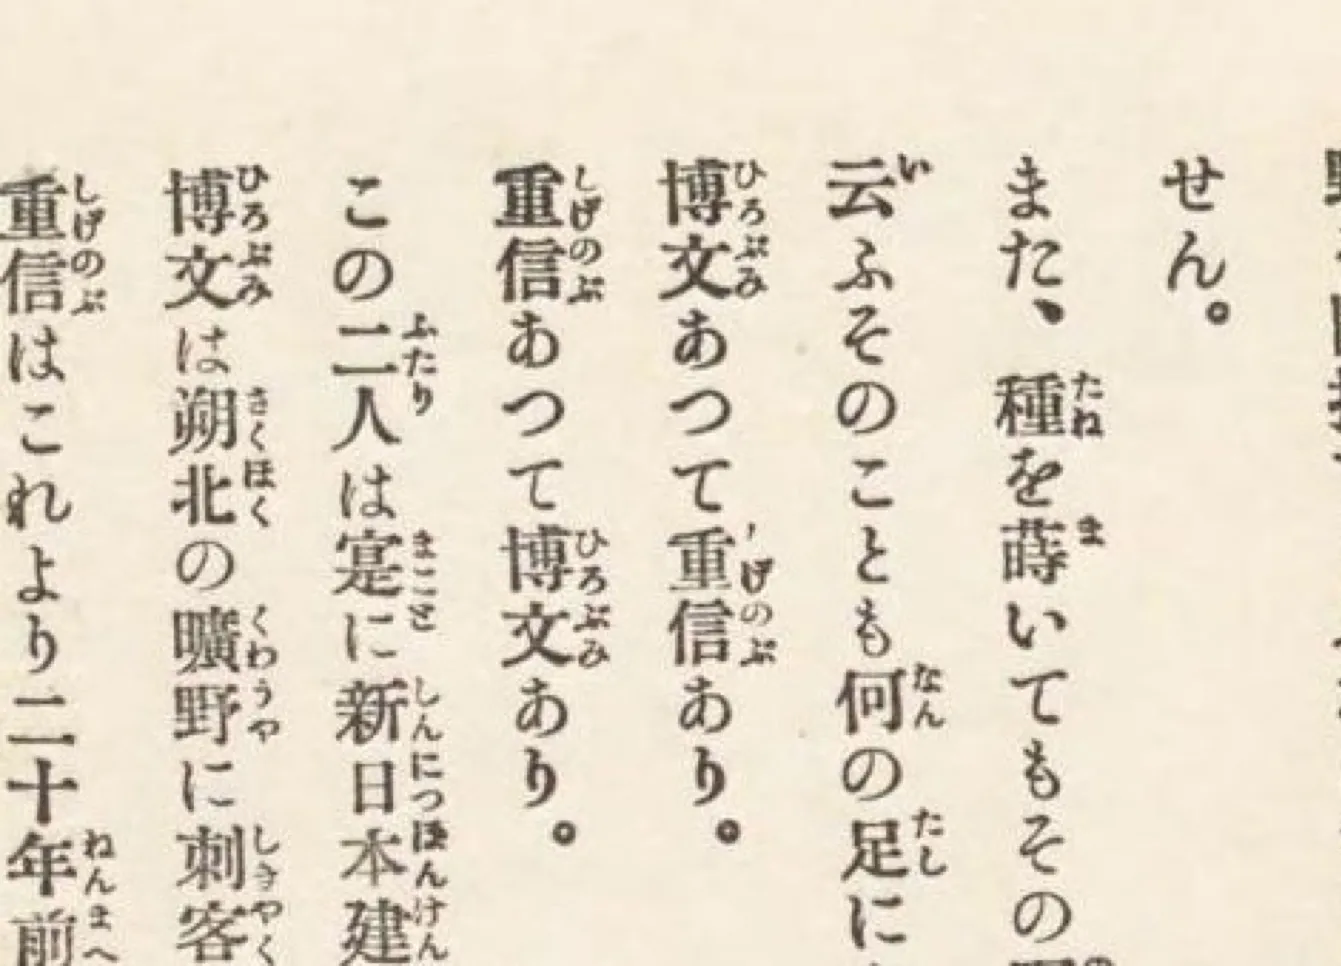 せん。
また、種を蒔いてもその
云ふそのことも何の足に
博文あつて重信あり。
重信あつて博文あり。
この二人は寔に新日本建
博文は朔北の曠野に刺客
重信はこれより二十年前